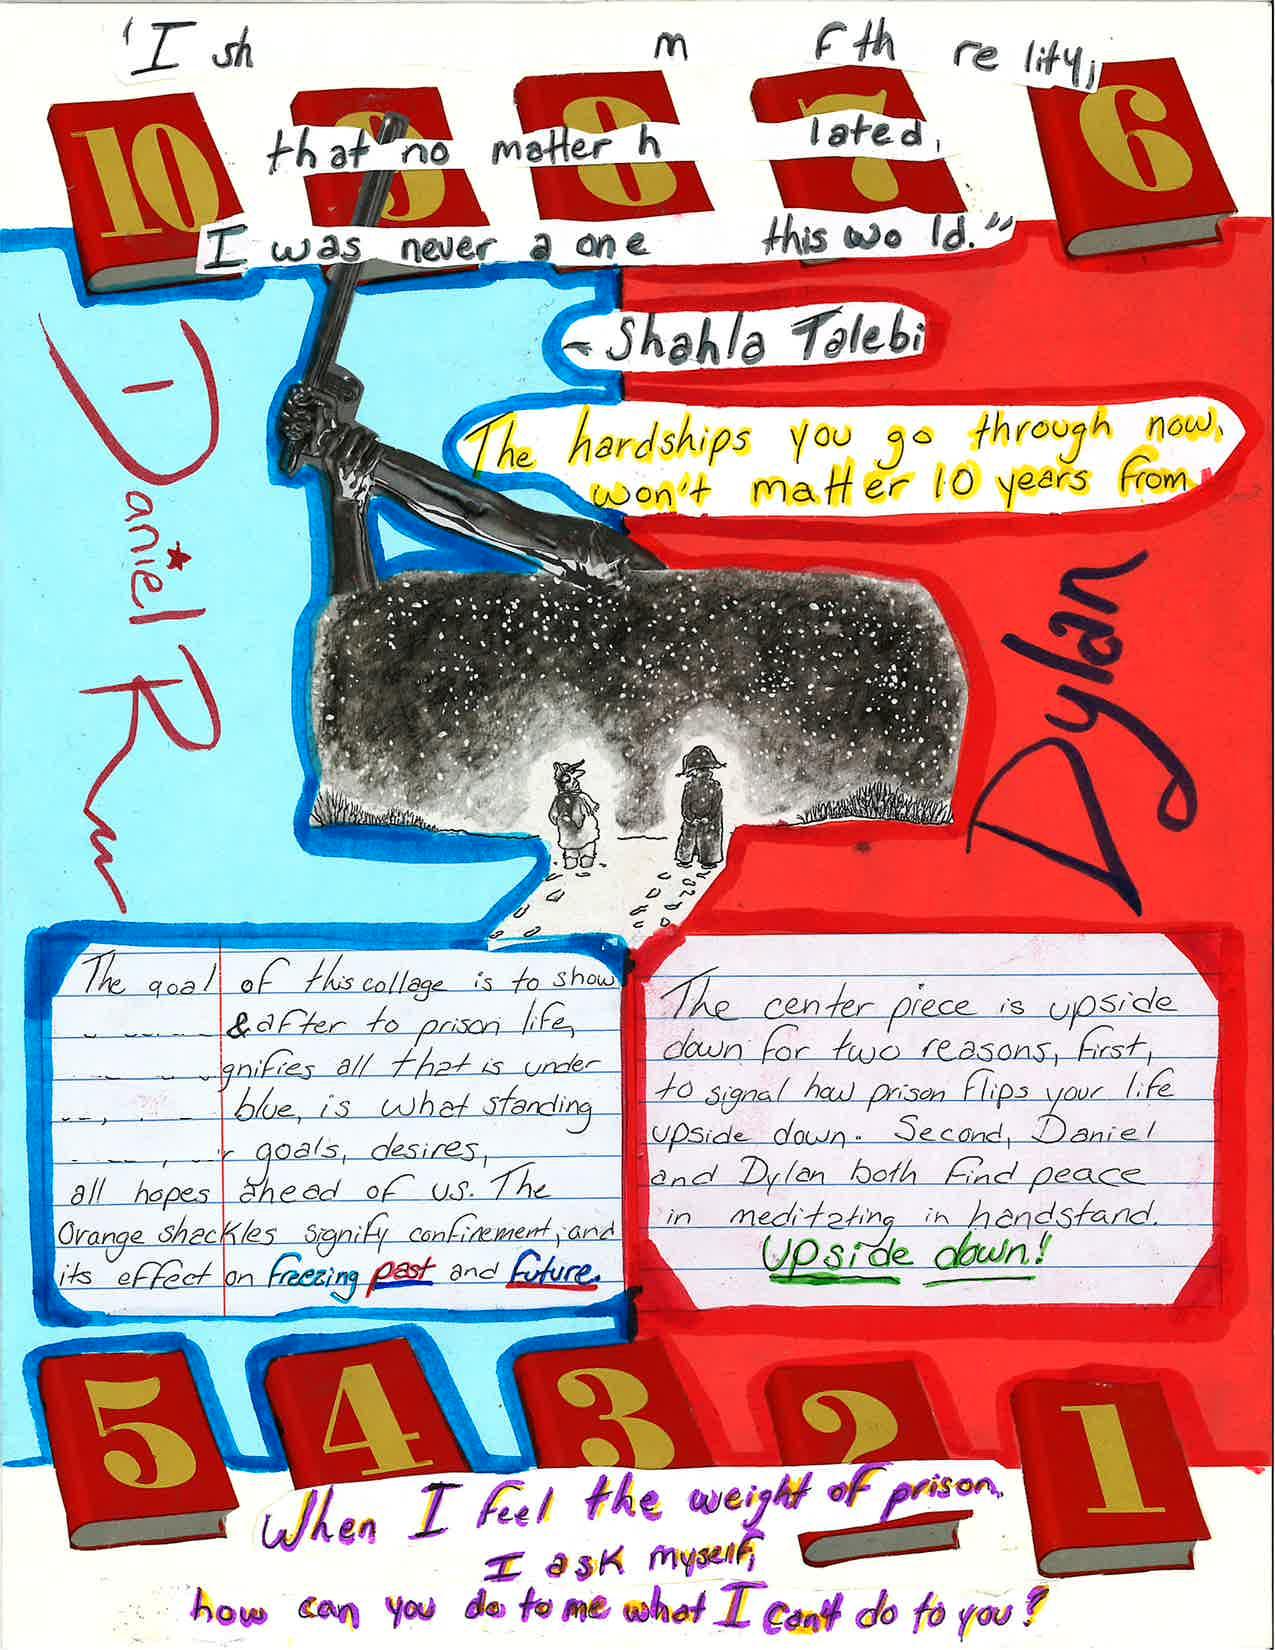 'I sh m f th re lity,
10 9 8 7 6
that no matter h lated,
I was never a one this wo ld."
- Shahla Talebi
The hardships you go through now,
won't matter 10 years from
Daniel R
Dylan
The goal of this collage is to show
& after to prison life,
gnifies all that is under
blue, is what standing
goals, desires,
all hopes ahead of us. The
Orange shackles signify confinement, and
its effect on freezing past and future.
The center piece is upside
down for two reasons, first,
to signal how prison flips your life
upside down. Second, Daniel
and Dylan both find peace
in meditating in handstand.
Upside down!
5 4 3 2 1
When I feel the weight of prison,
I ask myself,
how can you do to me what I can't do to you?